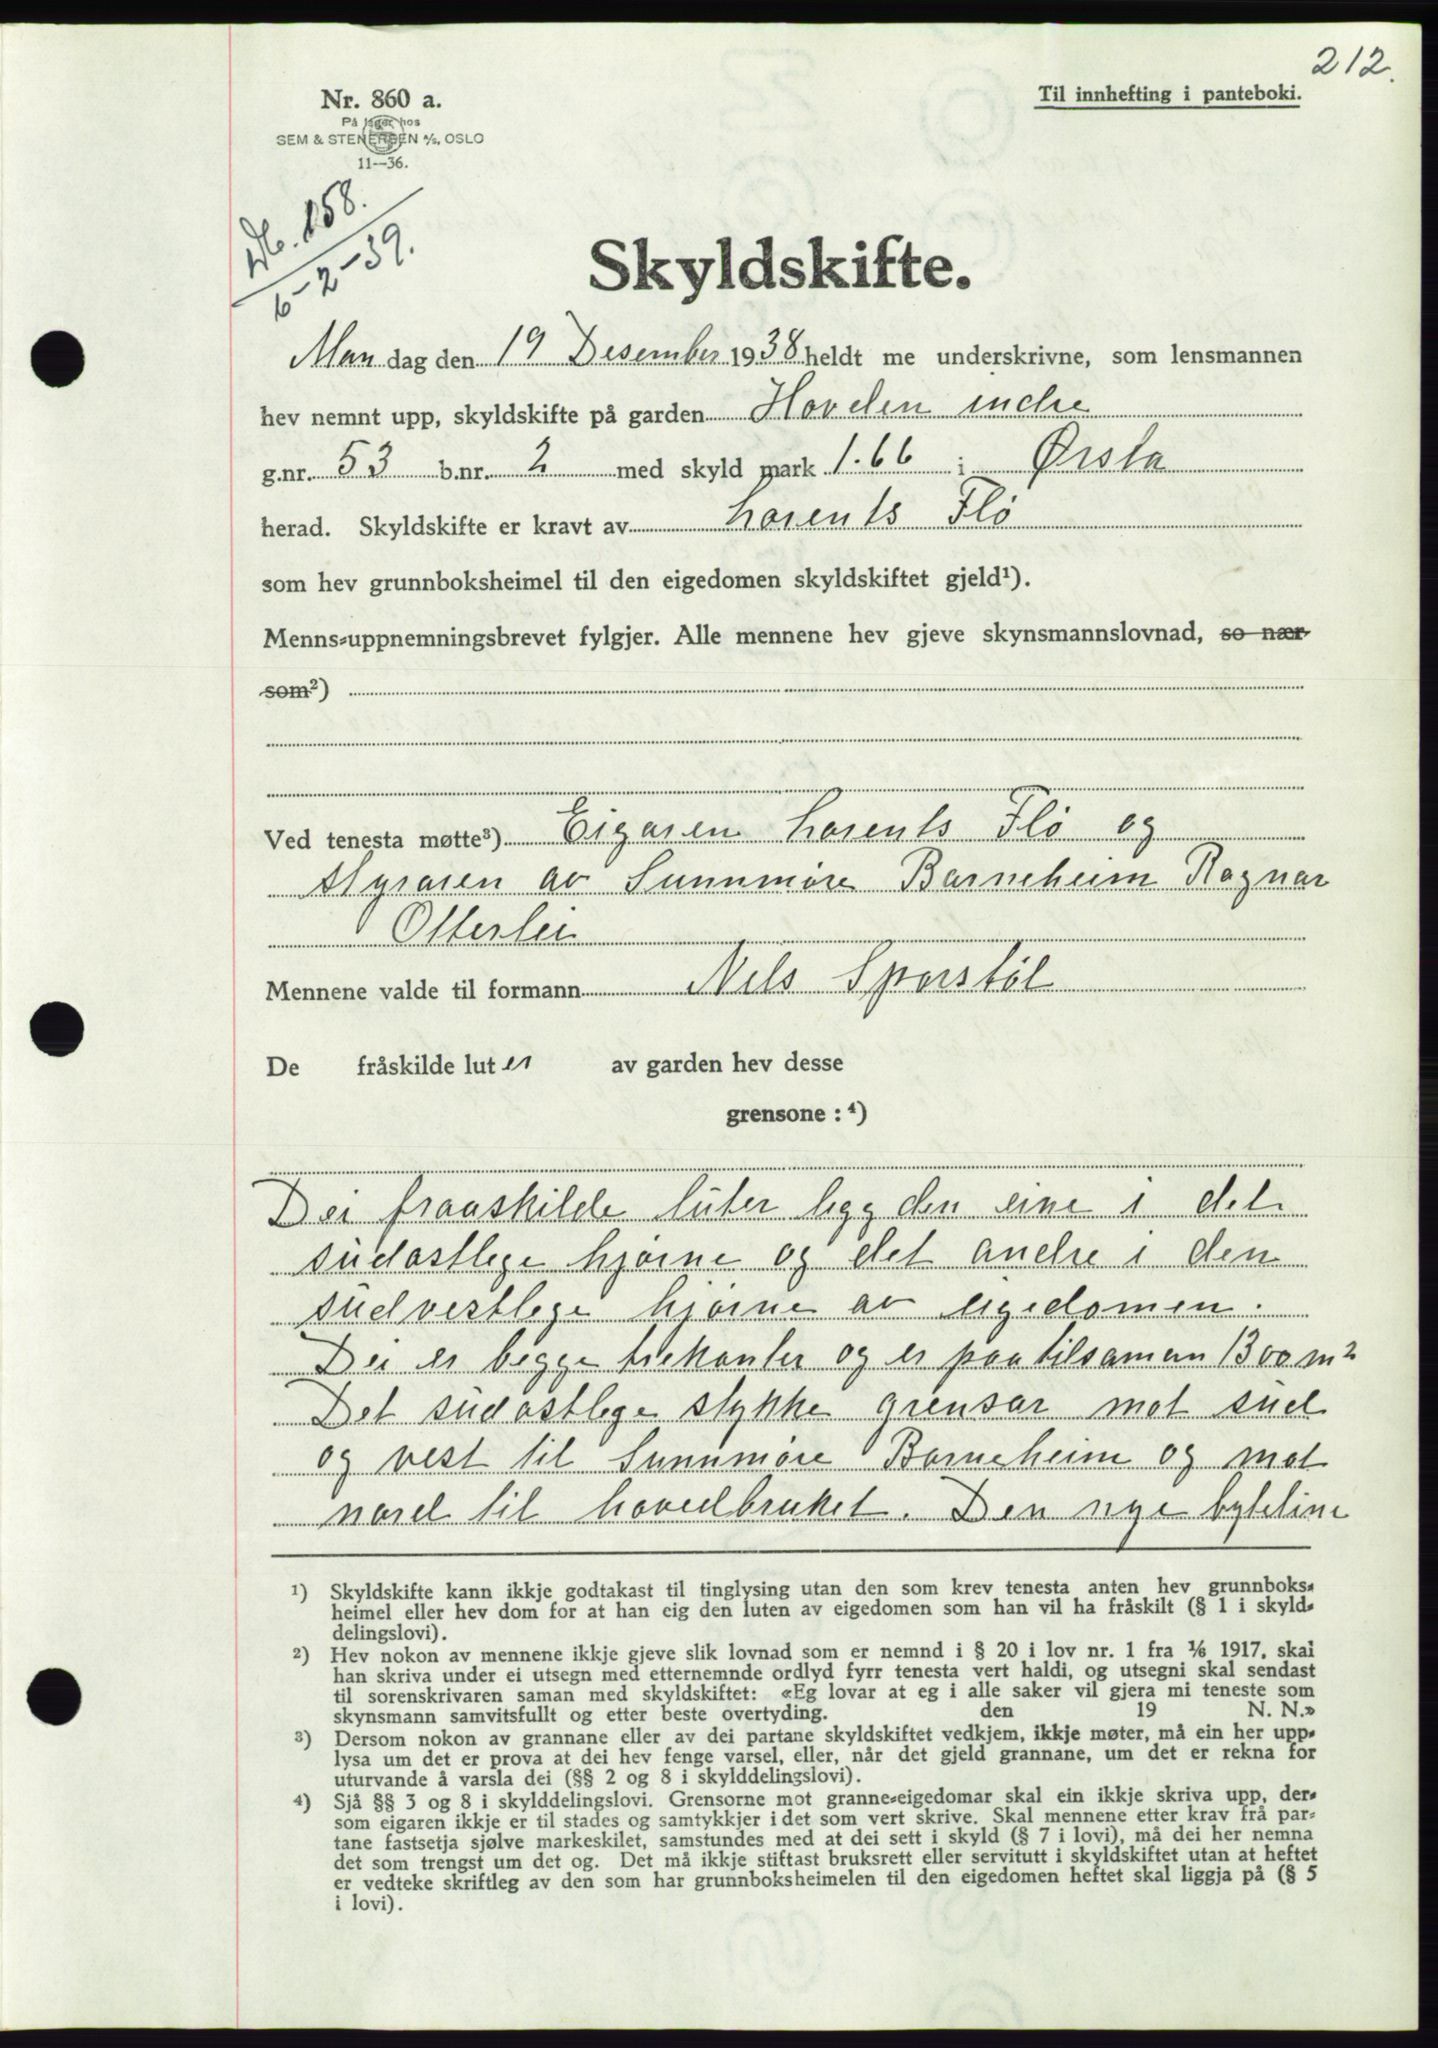 212.
Nr. 860 a.
Til innhefting i panteboki.
På lager hos
SEM & STENERSEN A/S, OSLO
11—36.
Db. 158.
6-2-39.
Skyldskifte.
Man dag den 19 Desember 1938 heldt me underskrivne, som lensmannen
hev nemnt upp, skyldskifte på garden Hovden indre
g.nr. 53 b.nr. 2 med skyld mark 1.66 i Ørsta
herad. Skyldskifte er kravt av Lorents Flö
som hev grunnboksheimel til den eigedomen skyldskiftet gjeld¹).
Menns-uppnemningsbrevet fylgjer. Alle mennene hev gjeve skynsmannslovnad, so nær
som²)
Ved tenesta møtte³) Eigaren Lorents Flö og
styraren av Sunnmöre Barneheim Ragnar
Otterlei
Mennene valde til formann Nils Sporstöl
De fråskilde lut er av garden hev desse
grensone : ⁴)
Dei fraaskilde luter ligg den eine i det
südöstlege hjörne og det andre i den
südvestlege hjörne av eigedomen.
Dei er begge trekanter og er paa tilsaman 1300 m²
Det südöstlege stykke grensar mot süd
og vest til Sunnmöre Barneheim og mot
nord til hovedbruket. Den nye byteline
¹) Skyldskifte kann ikkje godtakast til tinglysing utan den som krev tenesta anten hev grunnboks-
heimel eller hev dom for at han eig den luten av eigedomen som han vil ha fråskilt (§ 1 i skyld-
delingslovi).
²) Hev nokon av mennene ikkje gjeve slik lovnad som er nemnd i § 20 i lov nr. 1 fra 1/6 1917, skal
han skriva under ei utsegn med etternemnde ordlyd fyrr tenesta vert haldi, og utsegni skal sendast
til sorenskrivaren saman med skyldskiftet: «Eg lovar at eg i alle saker vil gjera mi teneste som
skynsmann samvitsfullt og etter beste overtyding. den 19 N. N.»
³) Dersom nokon av grannane eller av dei partane skyldskiftet vedkjem, ikkje møter, må ein her upp-
lysa um det er prova at dei hev fenge varsel, eller, når det gjeld grannane, um det er rekna for
uturvande å varsla dei (§§ 2 og 8 i skylddelingslovi).
⁴) Sjå §§ 3 og 8 i skylddelingslovi. Grensorne mot granne-eigedomar skal ein ikkje skriva upp, der-
som eigaren ikkje er til stades og samtykkjer i det som vert skrive. Skal mennene etter krav frå par-
tane fastsetja sjølve markeskilet, samstundes med at dei sett i skyld (§ 7 i lovi), må dei her nemna
det som trengst um det og. Det må ikkje stiftast bruksrett eller servitutt i skyldskiftet utan at heftet
er vedteke skriftleg av den som har grunnboksheimelen til den eigedomen heftet skal liggja på (§ 5
i lovi).